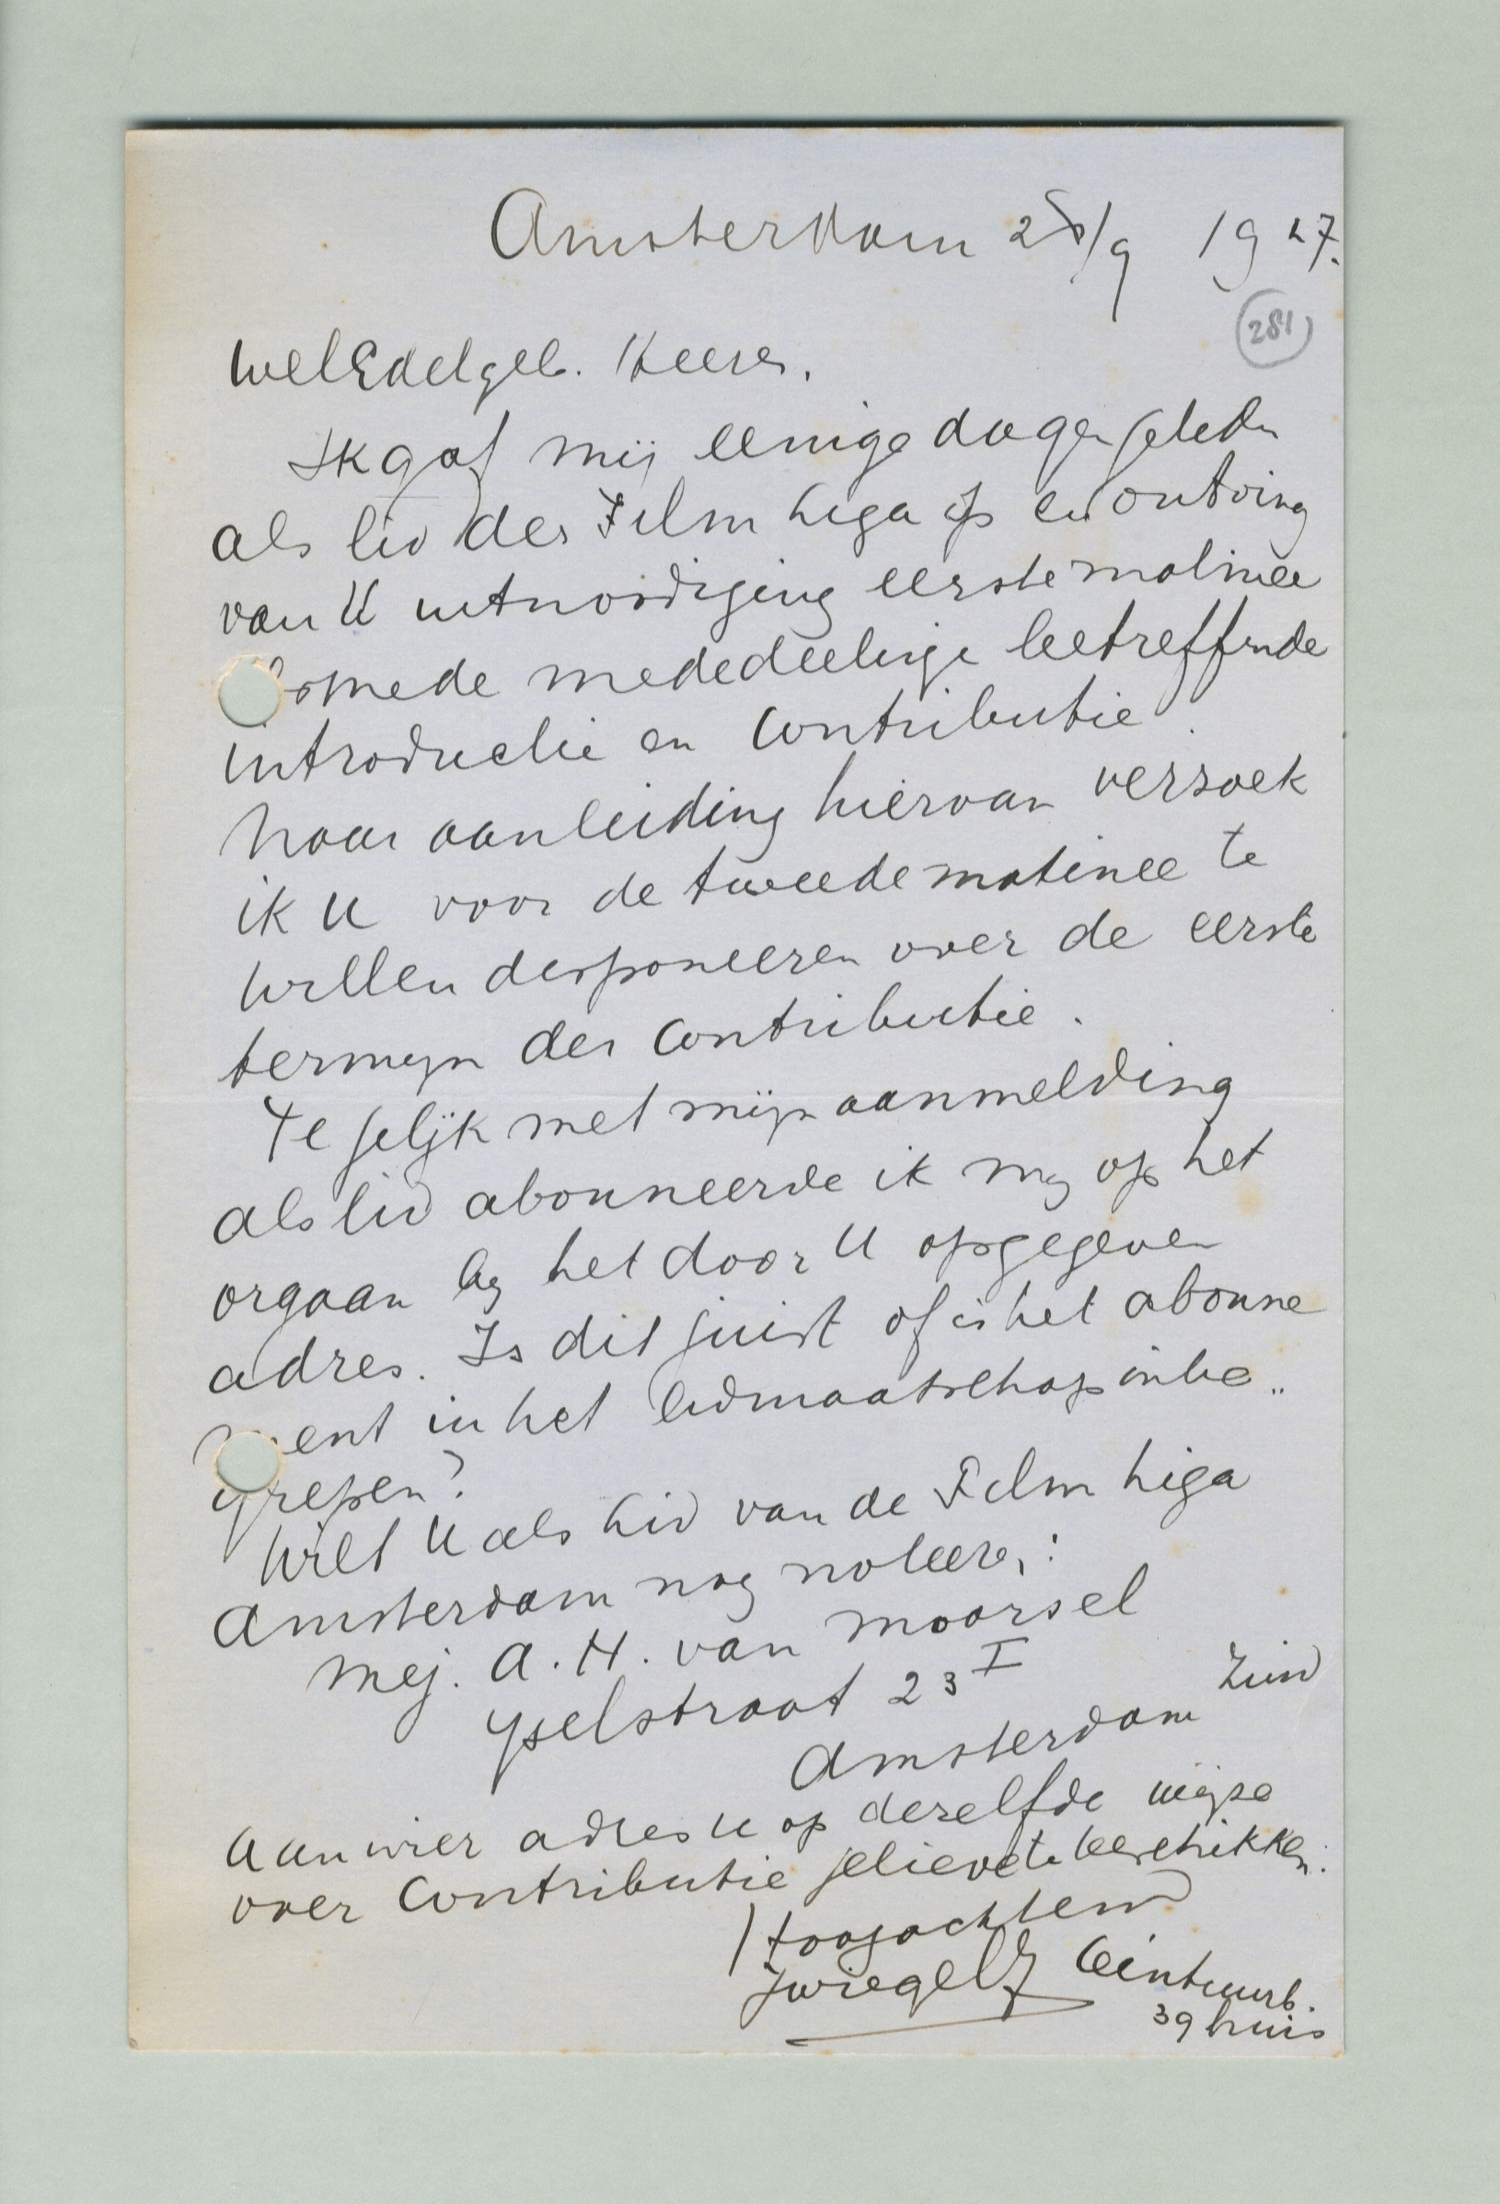 Amsterdam 28/9 1927.
281
WelEdelgeb. Heeren.
Ik gaf mij eenige dagen geleden
als lid der Film Liga op en ontving
van U uitnoodiging eerste matinee
alsmede mededeelinge betreffende
introductie en Contributie.
Naar aanleiding hiervan verzoek
ik U voor de tweede matinee te
willen disponeeren over de eerste
termyn der Contributie.
Te gelijk met mijn aanmelding
als lid abonneerde ik my op het
orgaan by het door U opgegeven
adres. Is dit juist of is het abonne
ment in het lidmaatschap inbe„
grepen?
Wilt U als Lid van de Film Liga
Amsterdam nog noteeren:
Mej. A. H. van Moorsel
Yselstraat 23 I
Amsterdam Zuid
Aan wier adres U op dezelfde wijze
over Contributie gelieve te beschikken.
Hoogachtend
Ceintuurb.
39 huis